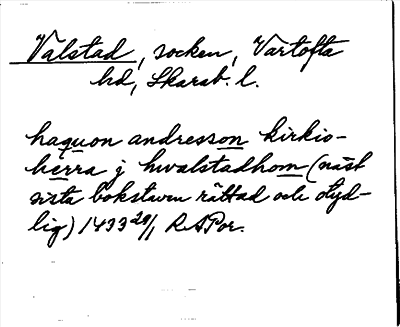 Valstad, socken, Vartofta
hd, Skarab. l.
haquon andresson kirkio-
herra j hwalstadhom (näst
sista bokstaven rättad och otyd-
lig) 1433 20/1 RAPor.